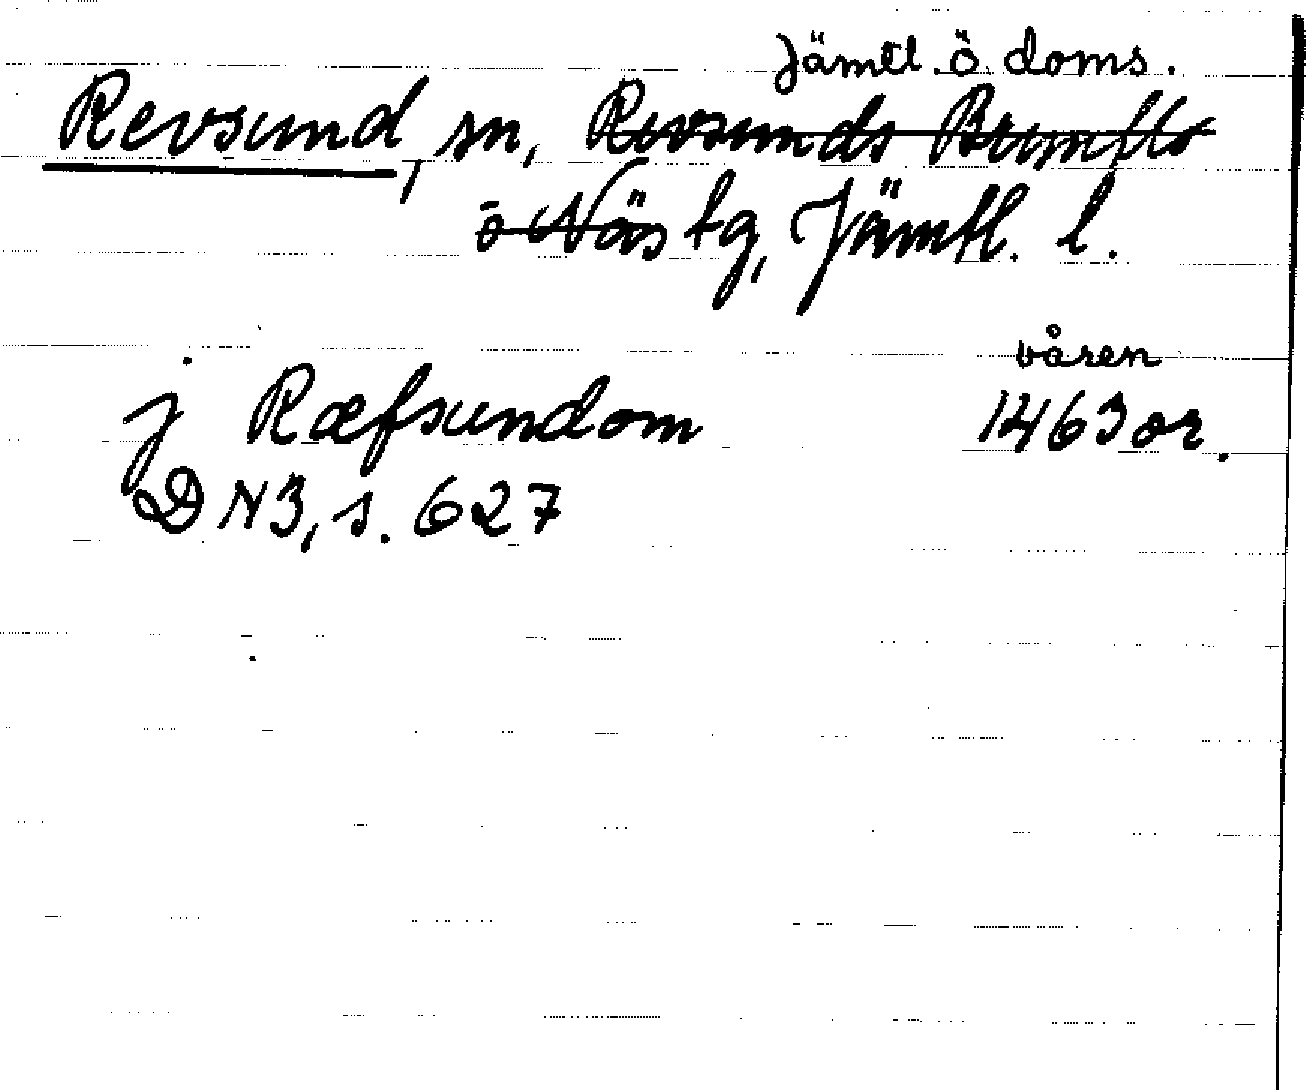 Jämtl. ö. doms.
Revsund, sn, Revsunds Brunflo
o Näs tg, Jämtl. l.
våren
j Ræfsundom 1463 or.
DN3, s. 627